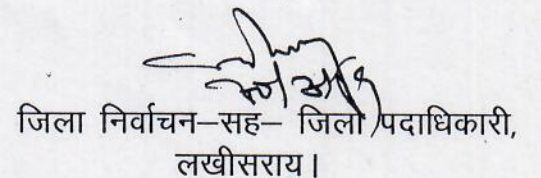 जिला निर्वाचन–सह– जिला पदाधिकारी,
लखीसराय।